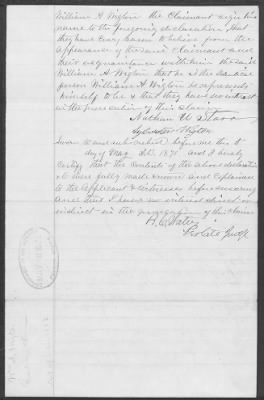 William A Wigton the Claimant sign his
name to the foregoing declaration that
they have every reason to believe from the
appearance of the said Claimant and
their acquaintance with him the said
William A Wigton that he is the identical
person William A Wigton he represents
himself to be & that they have no interest
in the prosecution of this claim
Nathan W
Sylvester Wigton
Sworn to and subscribed before me this
day of May A.D. 1871 and I hereby
certify that the contents of the above declaration
&c were fully made known and explained
to the applicant & witnesses before swearing
and that I have no interest direct or
indirect in the prosecution of this claim
H. C.
Probate Judge